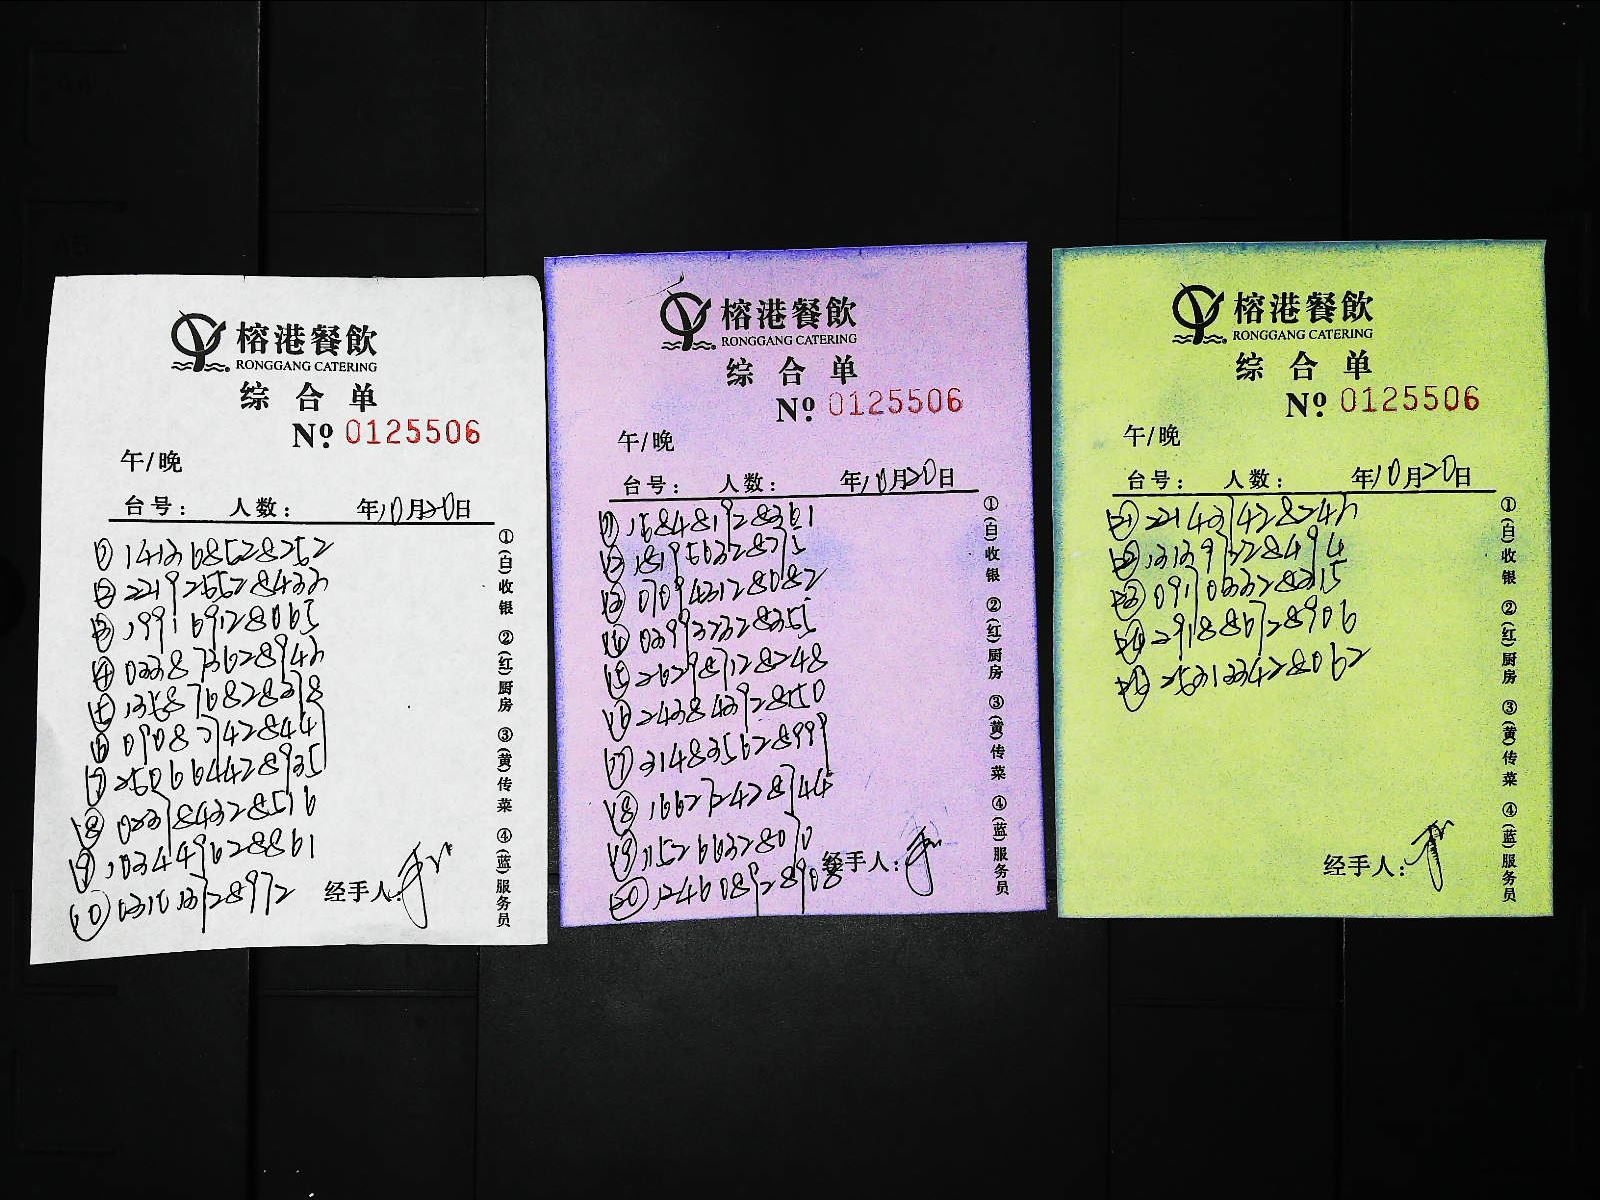 榕港餐飲
RONGGANG CATERING
综合单
Nº 0125506
午/晚
台号: 人数: 年10月20日
① 141368528252
② 221925528433
③ 199169128065
④ 033873628943
⑤ 135876828378
⑥ 09087742844
⑦ 250664428935
⑧ 023784328516
⑨ 103449628861
⑩ 031613728972
经手人:
①(白)收银 ②(红)厨房 ③(黄)传菜 ④(蓝)服务员
榕港餐飲
RONGGANG CATERING
综合单
Nº 0125506
午/晚
台号: 人数: 年10月20日
⑪ 168481928361
⑫ 181956328775
⑬ 070943128082
⑭ 039937328355
⑮ 262987128248
⑯ 243843928550
⑰ 314835628999
⑱ 166272428744
⑲ 115266328070
⑳ 124608928908
经手人:
①(白)收银 ②(红)厨房 ③(黄)传菜 ④(蓝)服务员
榕港餐飲
RONGGANG CATERING
综合单
Nº 0125506
午/晚
台号: 人数: 年10月20日
㉑ 221437428243
㉒ 131397328494
㉓ 091033328315
㉔ 291886728906
㉕ 253133428062
经手人:
①(白)收银 ②(红)厨房 ③(黄)传菜 ④(蓝)服务员